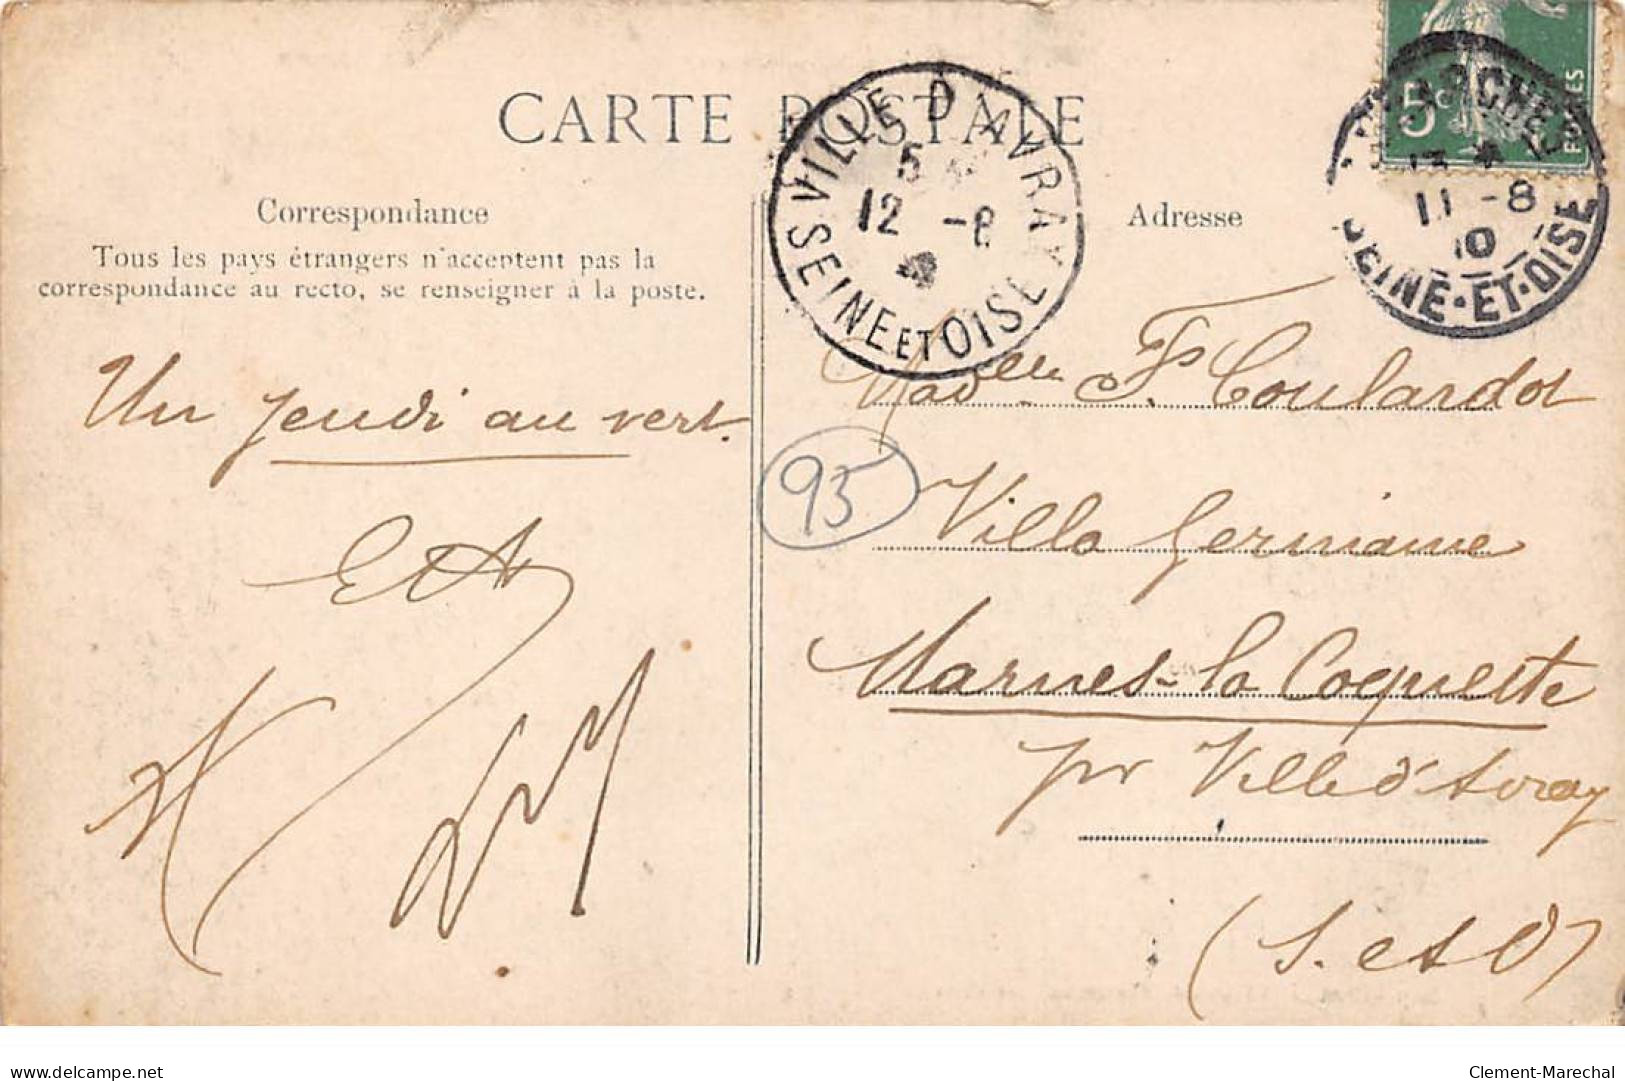 CARTE POSTALE
Correspondance
Tous les pays étrangers n'acceptent pas la
correspondance au recto, se renseigner à la poste.
Un jeudi au vert.
VILLE D'AVRAY
5
12 -8
SEINE ET OISE
5c
11 -8
10
SEINE-ET-OISE
Adresse
Madelle F. Coulardot
95
Villa Germaine
Marnes-la Coquette
pr Ville d'Avray
(S. et O)
Clement-Marechal
delcampe.net